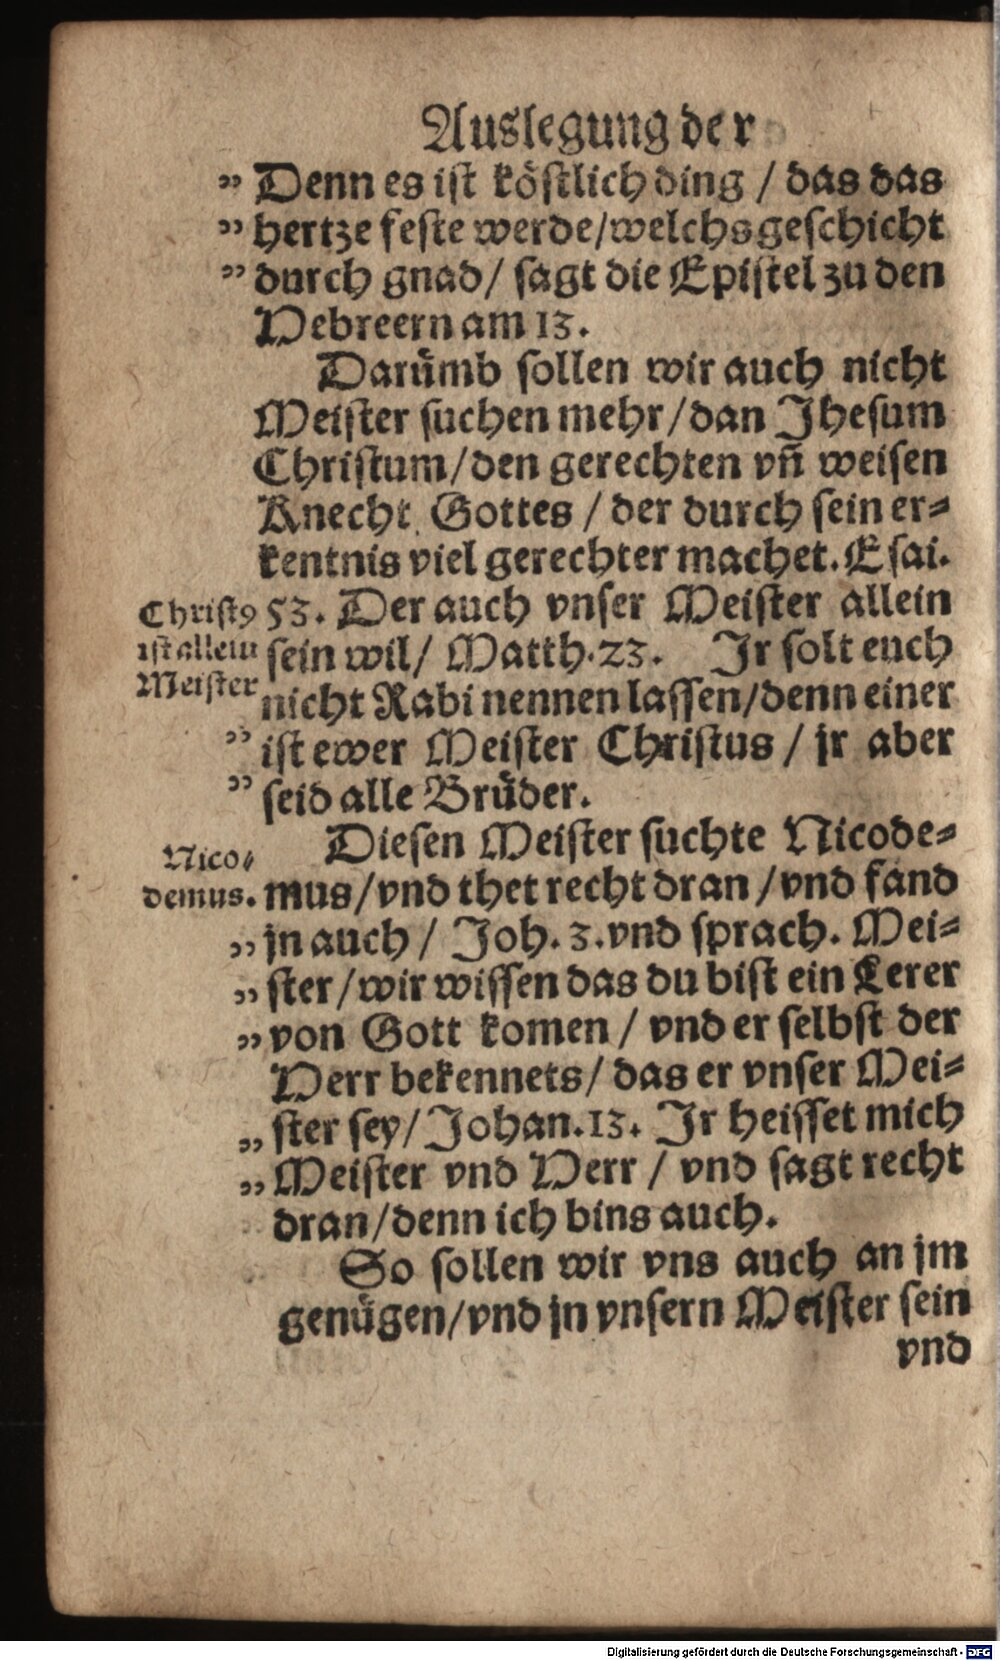 Auslegung der
” Denn es ist köstlich ding / das das
” hertze feste werde / welchs geschicht
” durch gnad / sagt die Epistel zu den
Hebreern am 13.
Darümb sollen wir auch nicht
Meister suchen mehr / dan Jhesum
Christum / den gerechten vñ weisen
Knecht Gottes / der durch sein er⸗
kentnis viel gerechter machet. Esai.
Christꝰ 53. Der auch vnser Meister allein
ist allein sein wil / Matth. 23. Jr solt euch
Meister nicht Rabi nennen lassen / denn einer
” ist ewer Meister Christus / jr aber
” seid alle Brüder.
Nico⸗ Diesen Meister suchte Nicode⸗
demus. mus / vnd thet recht dran / vnd fand
„ jn auch / Joh. 3. vnd sprach. Mei⸗
„ ster / wir wissen das du bist ein Lerer
„ von Gott komen / vnd er selbst der
Herr bekennets / das er vnser Mei⸗
„ ster sey / Johan. 13. Jr heisset mich
„ Meister vnd Herr / vnd sagt recht
dran / denn ich bins auch.
So sollen wir vns auch an jm
genügen / vnd jn vnsern Meister sein
vnd
Digitalisierung gefördert durch die Deutsche Forschungsgemeinschaft - DFG